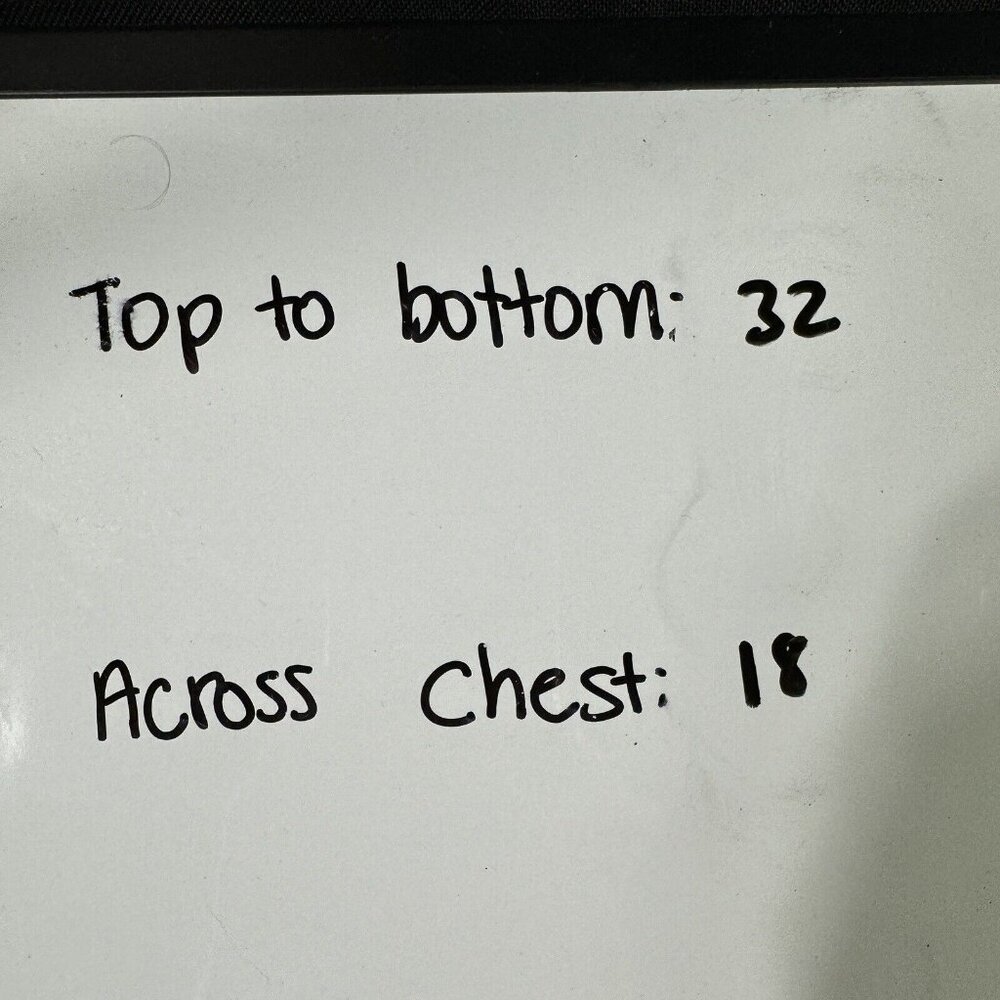 Top to bottom: 32
Across chest: 18